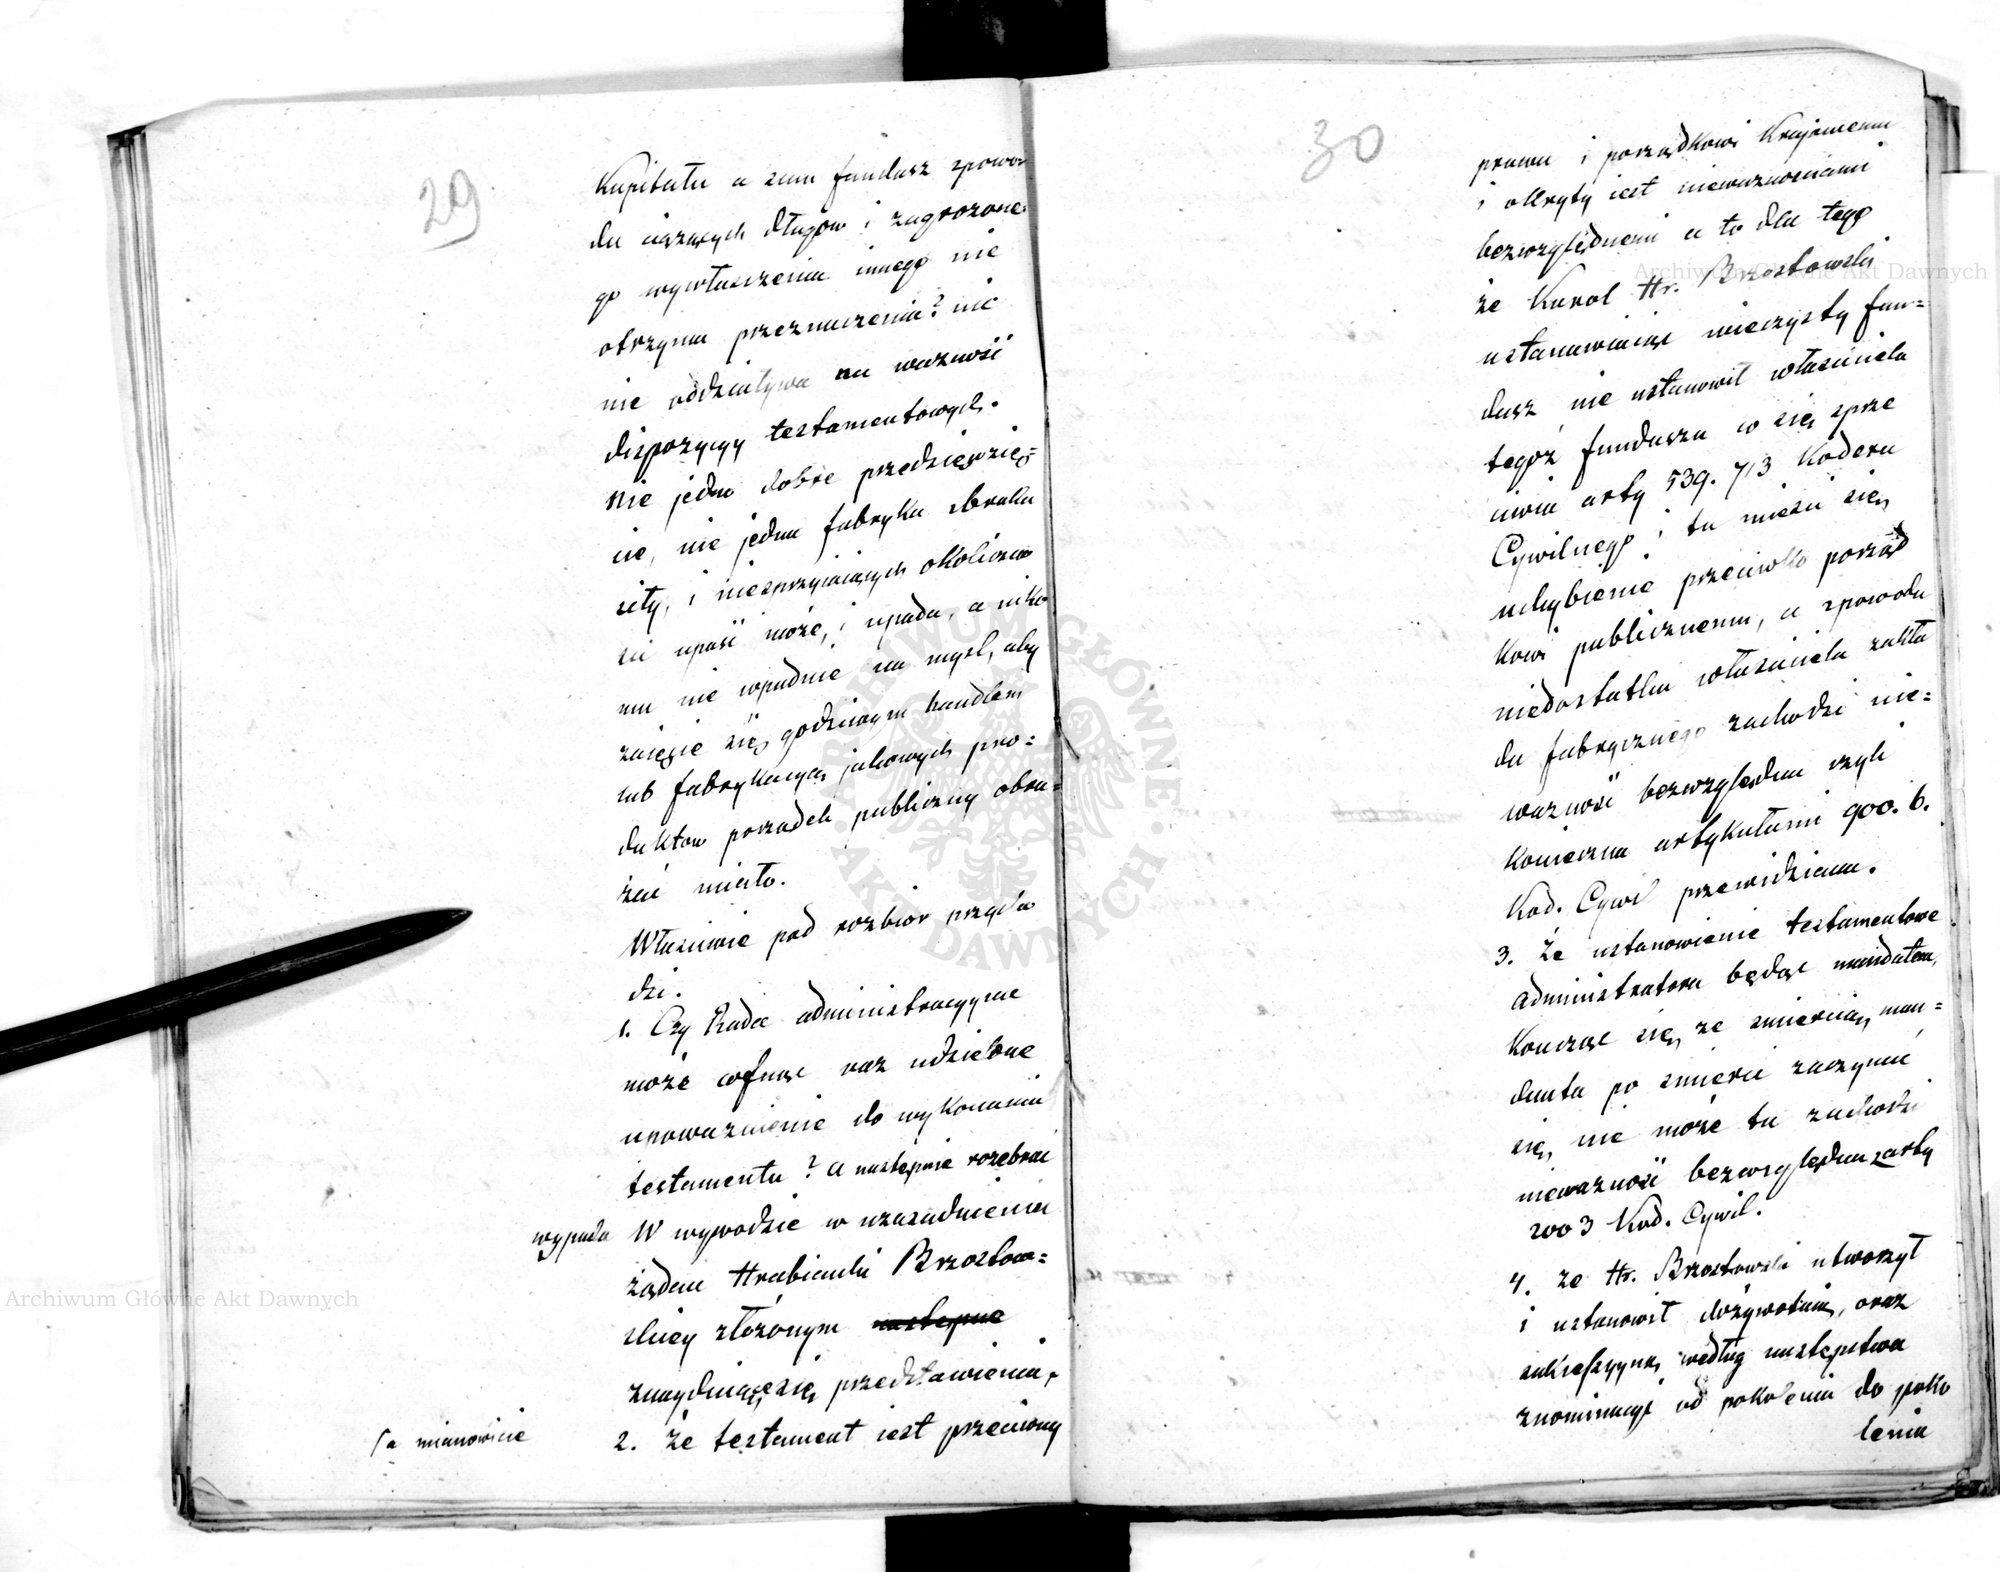 29
Kapitału a sam fundusz zpowo
du ciążących długów i zagrożone
go wywłaszczenia innego nie
otrzyma przeznaczenia? nic
nie oddziaływa na ważność
dispozycyy testamentowych.
Nie jedno dobre przedsięwzię=
cie, nie jedna fabryka zbraku
siły, i niesprzyiaiących okoliczno
ści upaść może, i upada, a niko
mu nie wpadnie na myśl, aby
zaięcie się godziwym handlem
lub fabrykacyą jakowych pro=
duktow porządek publiczny obra=
żać miało.
Właściwie pod rozbior przycho
dzi.
1. Czy Rada administracyyna
może cofnąć raz udzielone
upoważnienie do wykonania
testamentu? a następnie rozebrać
wypada
W wywodzie w uzasadnieniu
żądań Hrabianki Brzostow=
skiey złożonym następne
znayduiące się przedstawienia,
/a mianowicie
2. że testament iest przeciwny
30
prawu i porządkowi Krajowemu
i okryty iest nieważnościami
bezwzględnemi a to dla tego
że Karol Hr. Brzostowski
ustanawiaiąc wieczysty fun=
dusz nie ustanowił właściciela
tegoż funduszu w się sprze
ciwia arty 539. 713 Kodexu
Cywilnego i tu mieści się
uchybienie przeciwko porząd
kowi publicznemu, a zpowodu
niedostatku właściciela zakła
du fabrycznego zachodzi nie=
ważność bezwzględna czyli
konieczna artykułami 900. 6.
Kod. Cywil przewidziana.
3. Że ustanowienie testamentowe
administratora będąc mandatem,
Kończąc się ze śmiercią man=
danta po śmierci zaczynać
się nie może tu zachodzi
nieważność bezwzględna z arty
2003 Kod. Cywil.
4. że Hr. Brzostowski utworzył
i ustanowił dożywotnią, oraz
sukcessyyną według następstwa
znominacyi od pokolenia do poko
lenia
Archiwum Główne Akt Dawnych
Archiwum Główne Akt Dawnych
ARCHIWUM GŁÓWNE AKT DAWNYCH